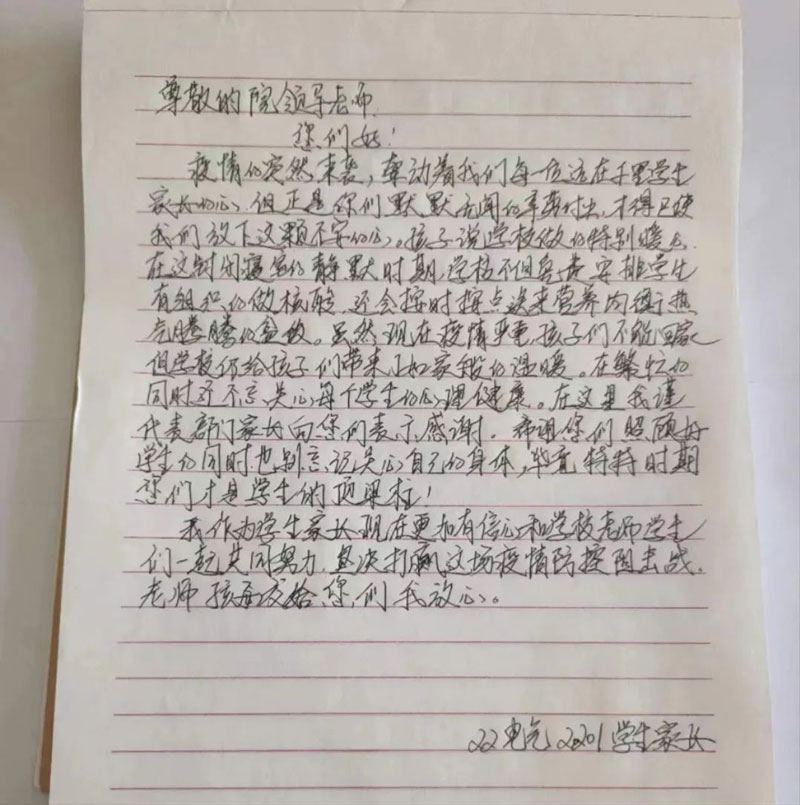 尊敬的院领导老师.
您们好!
疫情的突然来袭，牵动着我们每一位远在千里学生
家长的心，但正是你们默默无闻的辛勤付出，才得已使
我们放下这颗不安的心。孩子说学校做的特别暖心
在这封闭寝室的静默时期，学校不但负责安排学生
有组织的做核酸，还会按时按点送来营养均衡热
气腾腾的盒饭。虽然现在疫情严重，孩子们不能回家
但学校仍给孩子们带来了如家般的温暖。在繁忙的
同时还不忘关心每个学生的心理健康。在这里我谨
代表部门家长向您们表示感谢。希望您们照顾好
学生的同时也别忘记关心自己的身体，毕竟特特时期
您们才是学生的顶梁柱!
我作为学生家长现在更加有信心和学校老师学生
们一起共同努力，坚决打赢这场疫情防控阻击战.
老师孩子给您们我放心。
22电气2201学生家长